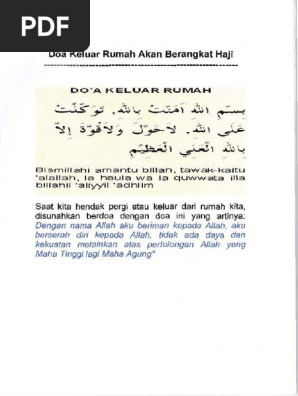 PDF
Doa Keluar Rumah Akan Berangkat Haji
DO'A KELUAR RUMAH
بِسْمِ اللهِ اٰمَنْتُ بِاللهِ. تَوَكَّلْتُ
عَلَى اللهِ. لَاحَوْلَ وَلَاقُوَّةَ اِلاَّ
بِاللهِ الْعَلِيِّ الْعَظِيْمِ
Bismillahi amantu billah, tawak-kaltu
'alallah, la haula wa la quwwata illa
billahil 'aliyyil 'adhiim
Saat kita hendak pergi atau keluar dari rumah kita,
disunahkan berdoa dengan doa ini yang artinya:
Dengan nama Allah aku beriman kepada Allah, aku
berserah diri kepada Allah, tidak ada daya dan
kekuatan melainkan atas pertolongan Allah yang
Maha Tinggi lagi Maha Agung"